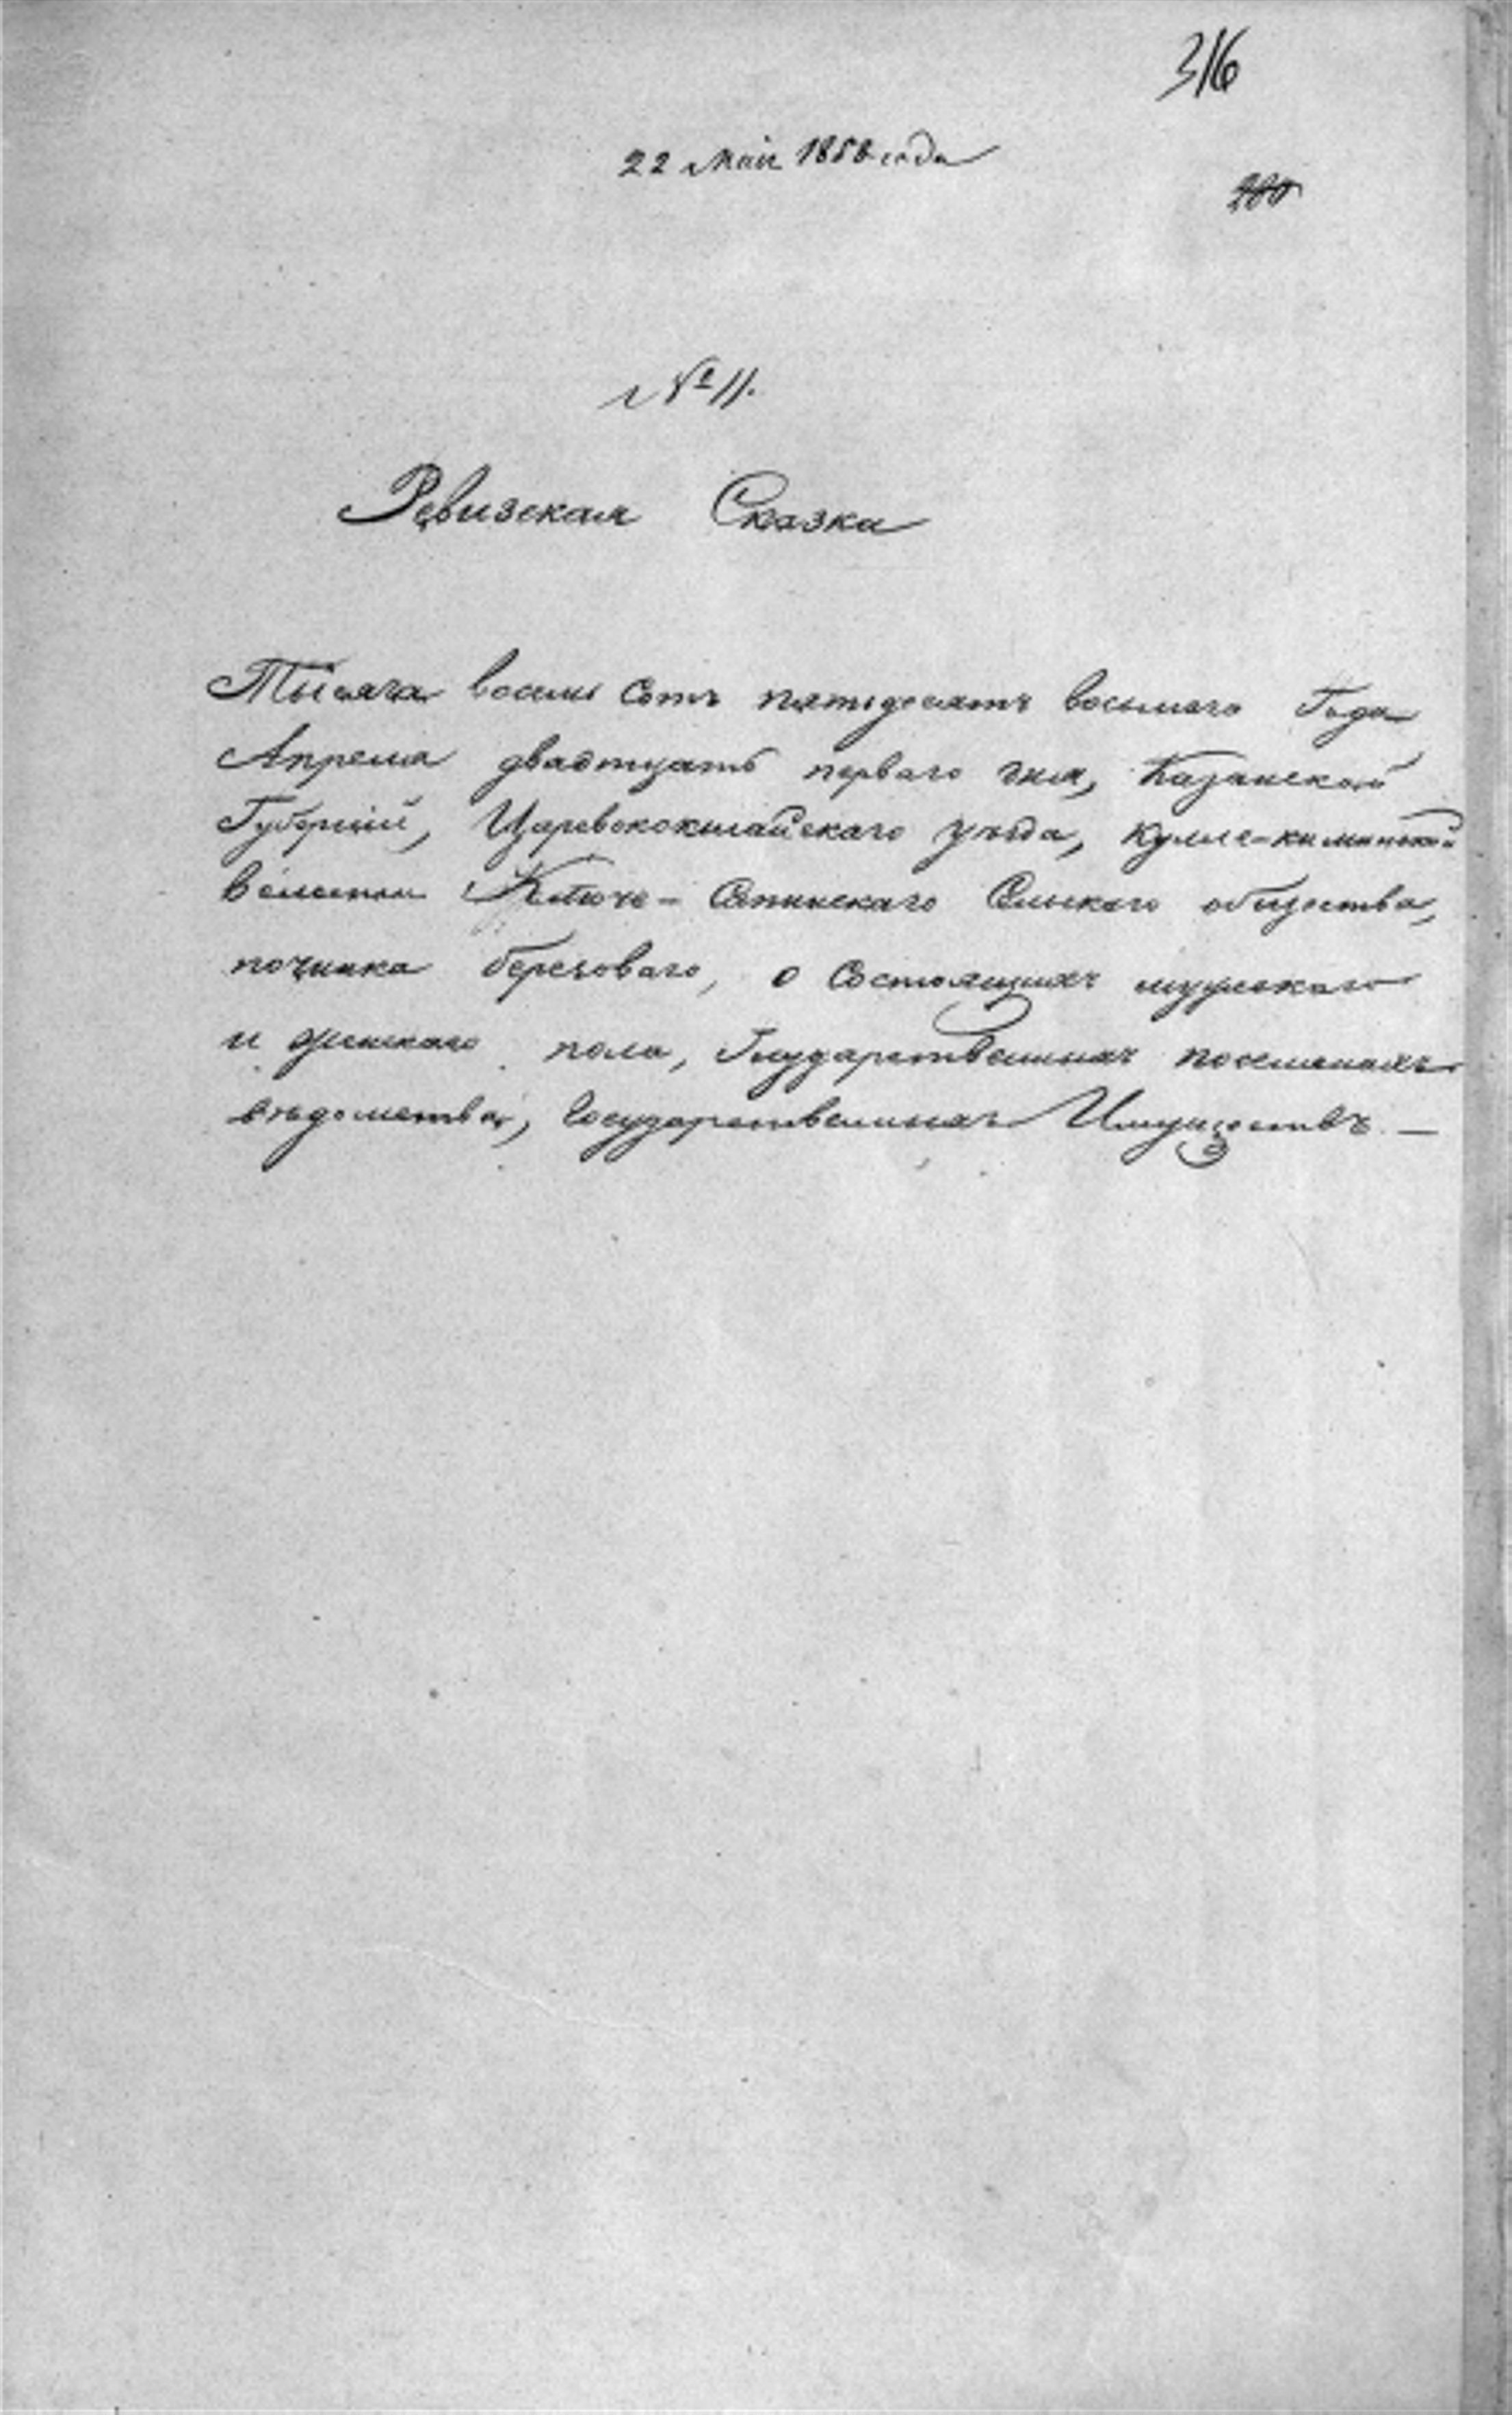 316
22 Маія 1858 года
280
№ 11.
Ревизская Сказка
Тысяча восемь сотъ пятьдесятъ восьмаго Года
Апреля двадтцать перваго дня, Казанской
Губерніи, Царевококшайскаго уѣзда, Кулле-киминской
волости Ключе-Сапинскаго Сельскаго общества,
починка березоваго, о Состоящихъ мужскаго
и женскаго пола, Государственныхъ поселянахъ
вѣдомства, Государственныхъ Имуществъ. —